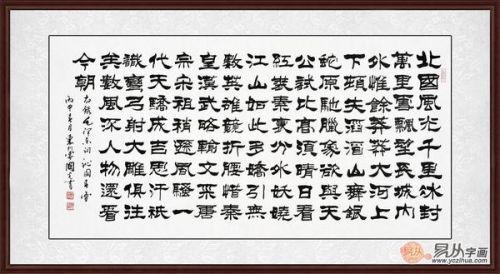 北國風光千里冰封
萬里雪飄望長城内
外惟餘莽莽大河上
下頓失滔滔山舞銀
蛇原馳臘象欲與天
公試比高須晴日看
紅裝素裹分外妖嬈
江山如此多嬌引無
數英雄競折腰惜秦
皇漢武略輸文采唐
宗宋祖稍遜風騷一
代天驕成吉思汗祇
識彎弓射大雕俱往
矣數風流人物還看
今朝
右錄毛澤東詞沁園春雪
丙申春月
易从字画
www.yczihua.com